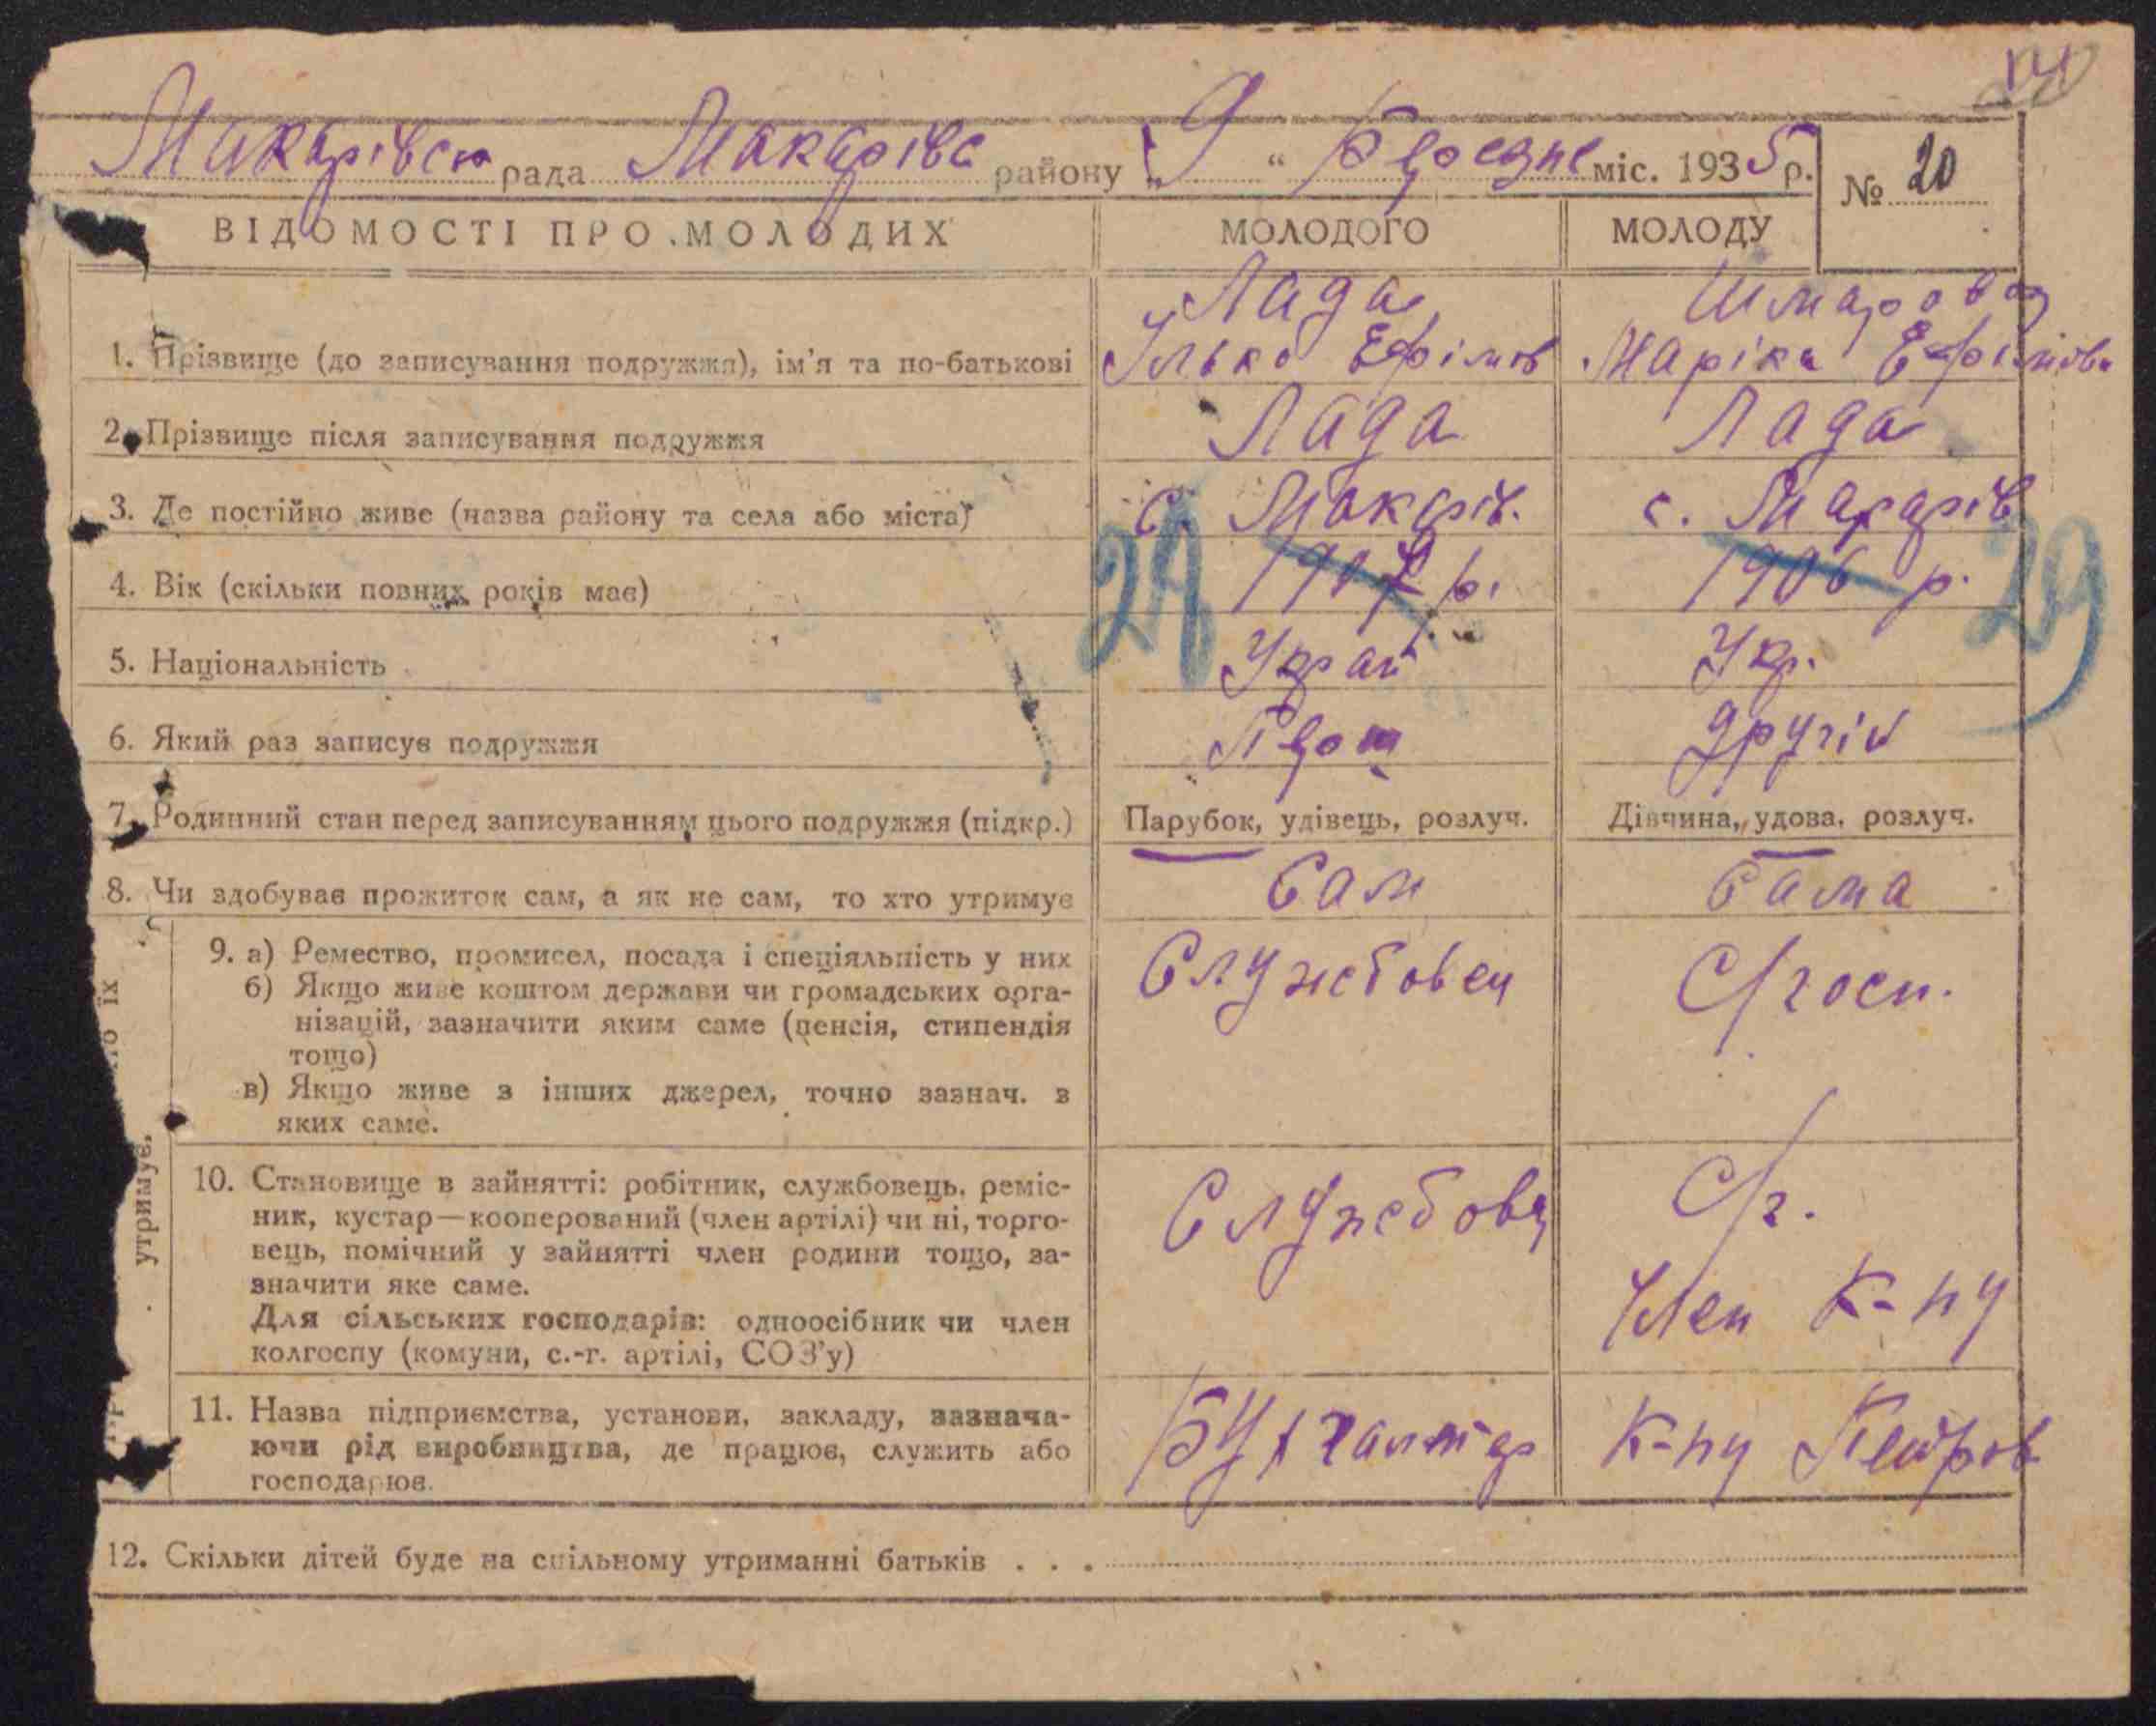 Макарівск рада Макарівс района „9“ Березне міс. 1935 р. № 20
ВІДОМОСТІ ПРО МОЛОДИХ МОЛОДОГО МОЛОДУ
Лада Шмарова
1. Прізвище (до записування подружжя), ім'я та по-батькові Ілько Ефімов Маріка Ефімовн
2. Прізвище після записування подружжя Лада Лада
3. Де постійно живе (назва району та села або міста) с. Макарів. с. Макарів
4. Вік (скільки повних років має) 1907 р. 1906 р. 29
5. Національність Украї Укр.
6. Який раз записує подружжя Перш Другій
7. Родинний стан перед записуванням цього подружжя (підкр.) Парубок, удівець, розлуч. Дівчина, удова, розлуч.
8. Чи здобуває прожиток сам, а як не сам, то хто утримує Сам Сама
9. а) Ремество, промисел, посада і спеціяльність у них Службовец С/госп.
б) Якщо живе коштом держави чи громадських орга-
нізацій, зазначити яким саме (пенсія, стипендія
тощо)
в) Якщо живе з інших джерел, точно зазнач. з
яких саме.
утримує.
10. Становище в зайнятті: робітник, службовець, реміс- Службовец С/г.
ник, кустар—кооперований (член артілі) чи ні, торго-
вець, помічний у зайнятті член родини тощо, за-
значити яке саме. Член К-пу
Для сільських господарів: одноосібник чи член
колгоспу (комуни, с.-г. артілі, СОЗ'у)
11. Назва підприємства, установи, закладу, зазнача- Бухгалтер К-пу Петров
ючи рід виробництва, де працює, служить або
господарює.
12. Скільки дітей буде на спільному утриманні батьків . . .